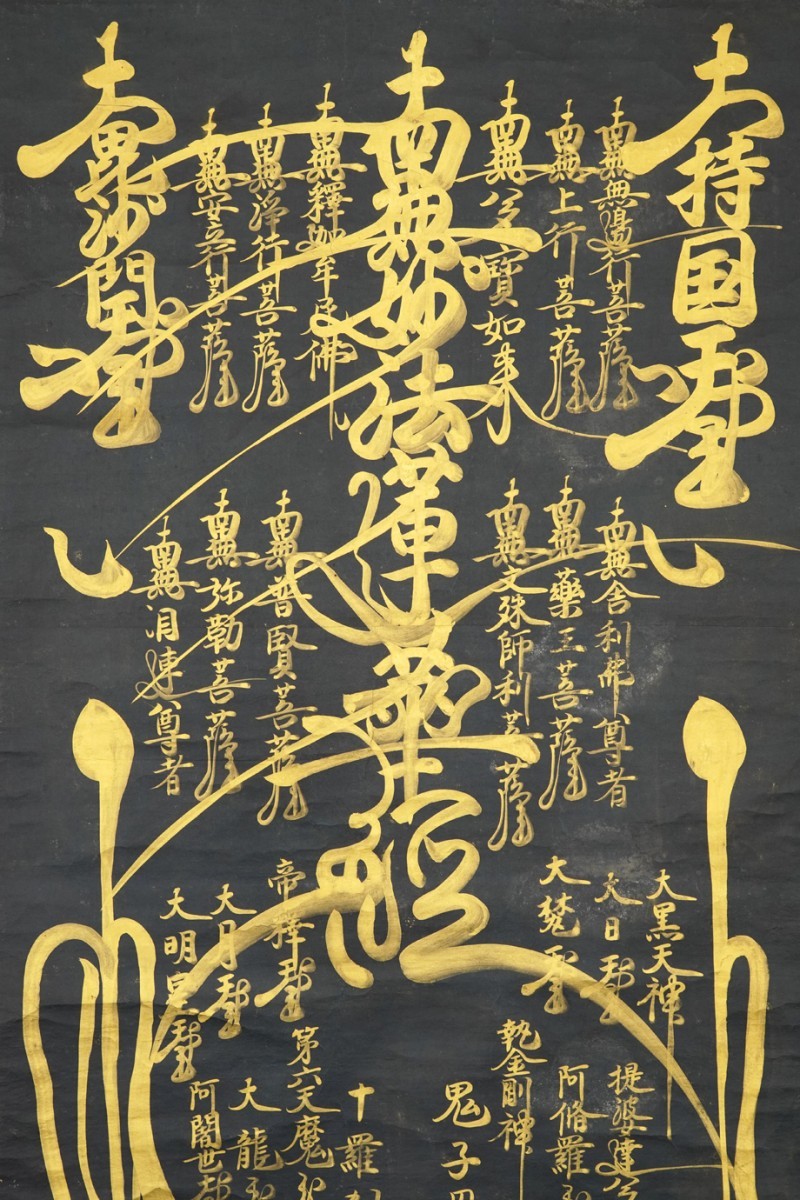 大持国天王
南無無邊行菩薩
南無上行菩薩
南無多寶如来
南無妙法蓮華經
南無釋迦牟尼佛
南無淨行菩薩
南無安立行菩薩
大毘沙門天王
南無舎利佛尊者
南無藥王菩薩
南無文殊師利菩薩
南無普賢菩薩
南無弥勒菩薩
南無目連尊者
大黒天神
大日天王
大梵天王
帝釋天王
大月天王
大明星天王
提婆達
阿脩羅
執金剛神
鬼子
十羅
第六天魔
大龍
阿闍世